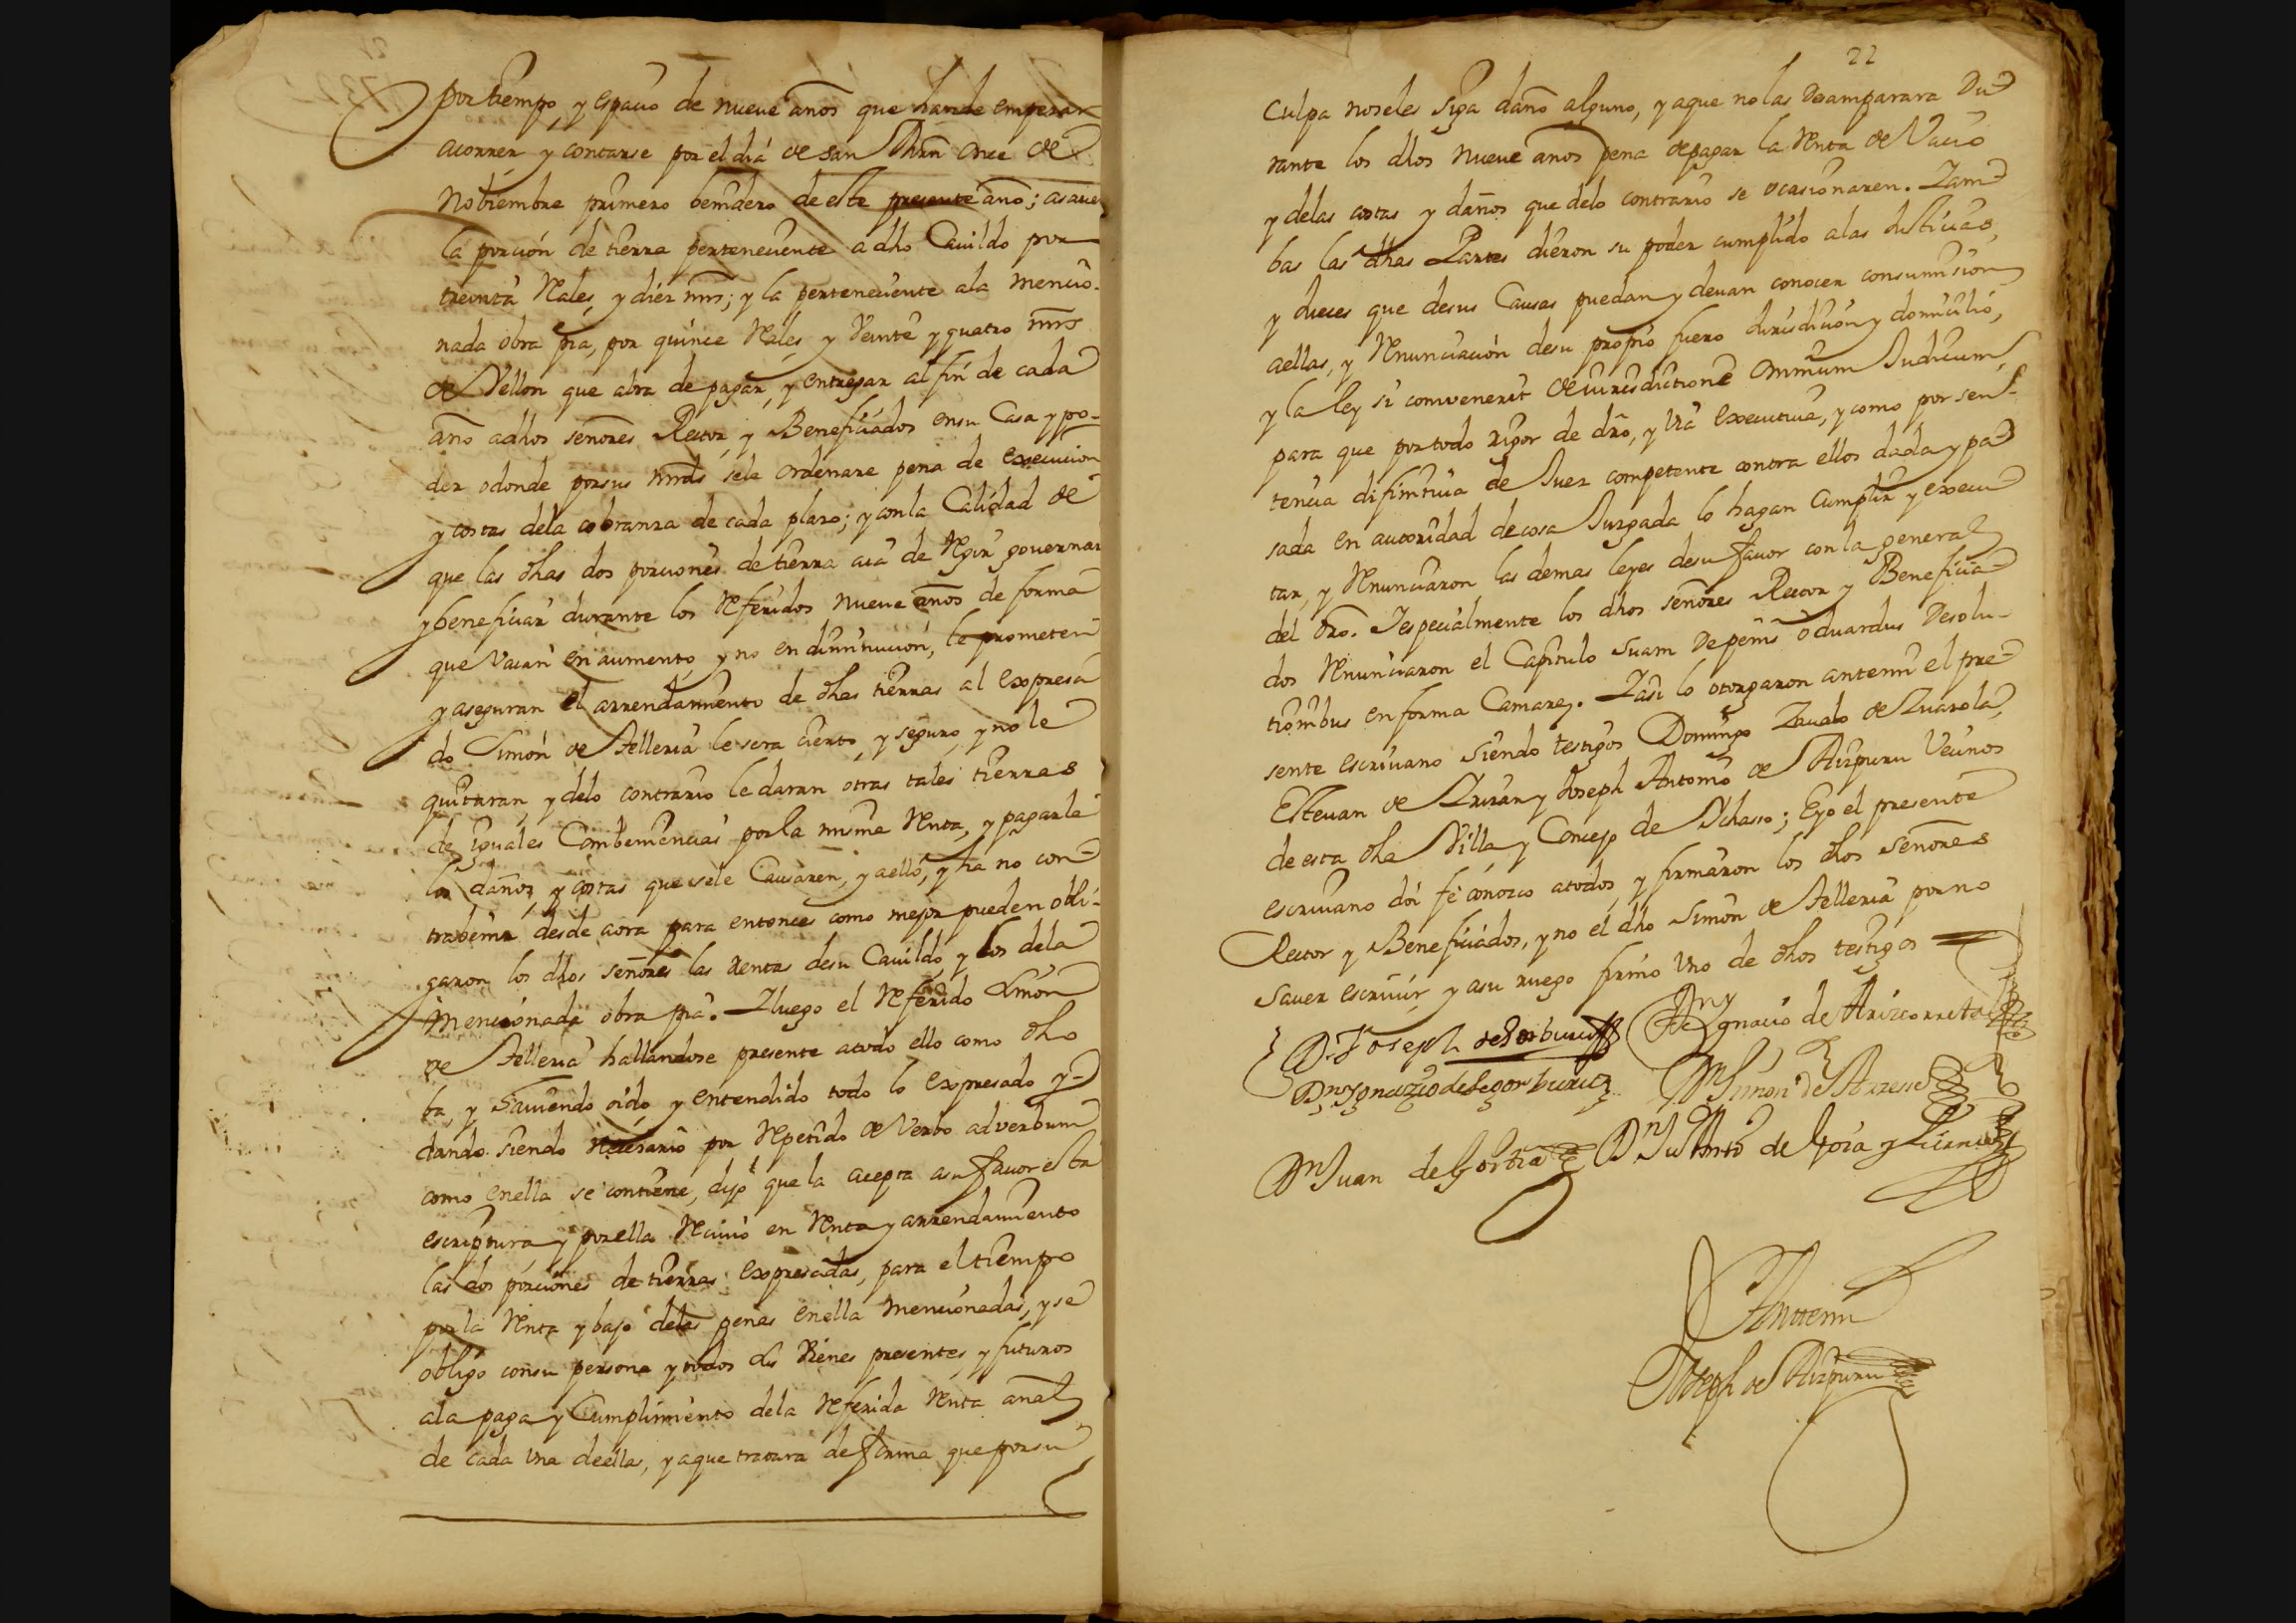 por tiempo, y espacio de nueve años que hande empezar
acorrer y contarse por el dia de San Mrn once de
Nobiembre primero benidero de este presente año; asaver
la porcion de tierra perteneciente a dho Cavildo por
treinta Rales, y diez mrs; y la perteneciente ala mencio-
nada obra pia, por quince Rales, y veinte y quatro mrs
de Vellon que abra de pagar, y entregar al fin de cada
año adhos señores Rector, y Beneficiados en su Casa y po-
der odonde por sus mrds sele ordenare pena de execucion
y costas dela cobranza de cada plazo; y con la Calidad de
que las dhas dos porciones de tierra aia de Regir governar
y beneficiar durante los Referidos nueve años de forma
que vaian en aumento, y no en diminucion, le prometen
y aseguran el arrendamiento de dhas tierras al expresa
do Simon de Telleria le sera cierto, y seguro, y no le
quitaran, y delo contrario le daran otras tales tierras
de iguales Combeniencias por la misma Renta, y pagarle
los daños, y costas que sele Causaren, y aello, y ha no con-
trabenir desde aora para entonces como mejor pueden obli-
garon los dhos señores las Rentas desu Cavildo, y los dela
Mencionada obra pia. Y luego el Referido Simon
de Telleria hallandose presente atodo ello como dho
ba, y haviendo oido, y entendido todo lo expresado y
dando siendo necesario por Repetido de Verbo adverbum
como en ella se contiene, dijo que la acepta asu favor esta
escriptura, y por ella Recivio en Renta y arrendamiento
las dos porciones de tierras expresadas, para el tiempo
por la Renta y bajo delas penas en ella mencionadas, y se
obligo con su persona y todos sus Bienes presentes, y futuros
ala paga y Cumplimiento dela Referida Renta anal
de cada una de ellas, y aque tratara de forma que por su
22
culpa noseles siga daño alguno, y aque no las desamparara Du-
rante los dhos nueve años pena depagar la Renta de Vacio
y delas costas y daños que delo contrario se ocasionaren. Y am-
bas las dhas Partes dieron su poder cumplido alas Justicias,
y Jueces que desus Causas puedan y devan conocer consumision
aellas, y Renunciacion desu propio fuero Jurisdicion y domicilio,
y la ley si convenerit de iurisdictione omnium Judicum,
para que por todo rigor de dro, y via executiva, y como por sen-
tencia difinitiva de Juez competente contra ellos dada y pa-
sada en autoridad decosa Juzgada lo hagan Cumplir y execu-
tar, y Renunciaron las demas leyes desu favor con la general
del dro. Y especialmente los dhos señores Rector y Beneficia-
dos Renunciaron el Capitulo Suam de penis oduardus Desolu-
tionibus en forma Camare. Y asi lo otorgaron antemi el pre-
sente escrivano siendo testigos Domingo Zavalo de Zuazola,
Estevan de Arizar y Joseph Antonio de Aizpuru Vecinos
de esta dha Villa, y Concejo de Ychaso; E yo el presente
escrivano doi fe conozco atodos, y firmaron los dhos señores
Rector y Beneficiados, y no el dho Simon de Telleria por no
Saver escrivir, y asu ruego firmo uno de dhos testigos
Dn Joseph de Segorburu Ygnacio de Arizcorreta
Dn Ygnazio de Segorburu Dn Simon de Arrese
Dn Juan de Gortia Dn Ju Antto de Goia y
Anttemi
Joseph de Aizpuru